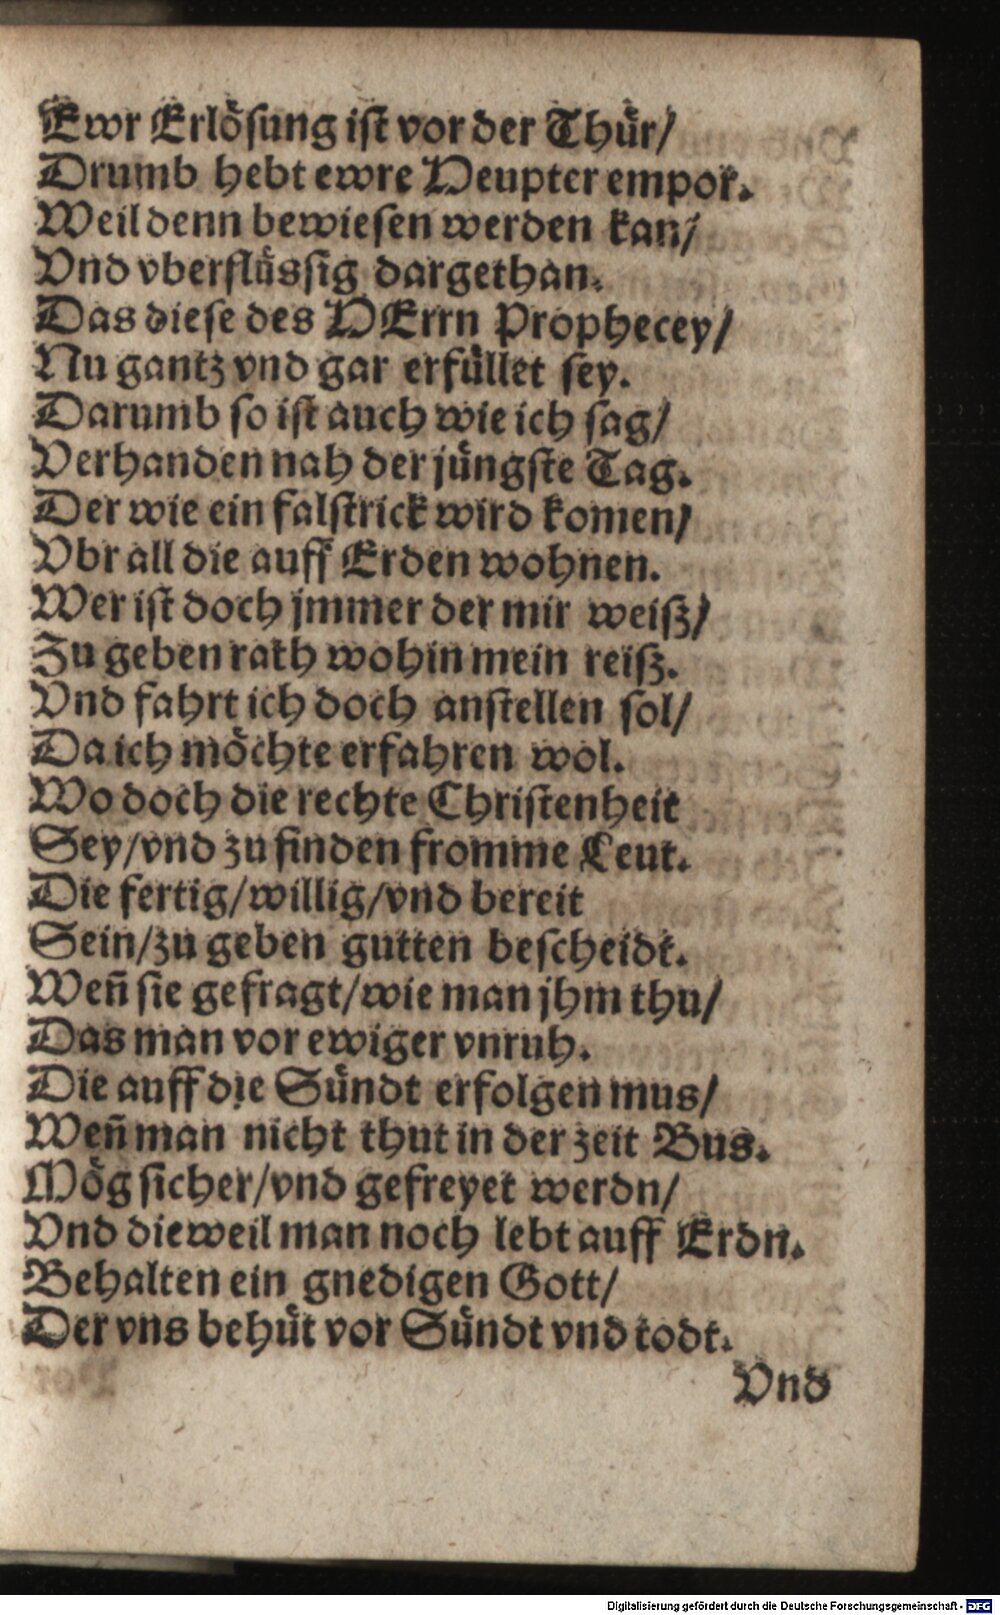 Ewr Erlösung ist vor der Thür/
Drumb hebt ewre Heupter empor.
Weil denn bewiesen werden kan/
Vnd vberflüssig dargethan.
Das diese des HErrn Prophecey/
Nu gantz vnd gar erfüllet sey.
Darumb so ist auch wie ich sag/
Verhanden nah der jüngste Tag.
Der wie ein falstrick wird komen/
Vbr all die auff Erden wohnen.
Wer ist doch jmmer der mir weiß/
Zu geben rath wohin mein reiß.
Vnd fahrt ich doch anstellen sol/
Da ich möchte erfahren wol.
Wo doch die rechte Christenheit
Sey/vnd zu finden fromme Leut.
Die fertig/willig/vnd bereit
Sein/zu geben gutten bescheidt.
Weñ sie gefragt/wie man jhm thu/
Das man vor ewiger vnruh.
Die auff die Sündt erfolgen mus/
Weñ man nicht thut in der zeit Bus.
Mög sicher/vnd gefreyet werdn/
Vnd dieweil man noch lebt auff Erdn.
Behalten ein gnedigen Gott/
Der vns behüt vor Sündt vnd todt.
Vnd
Digitalisierung gefördert durch die Deutsche Forschungsgemeinschaft - DFG